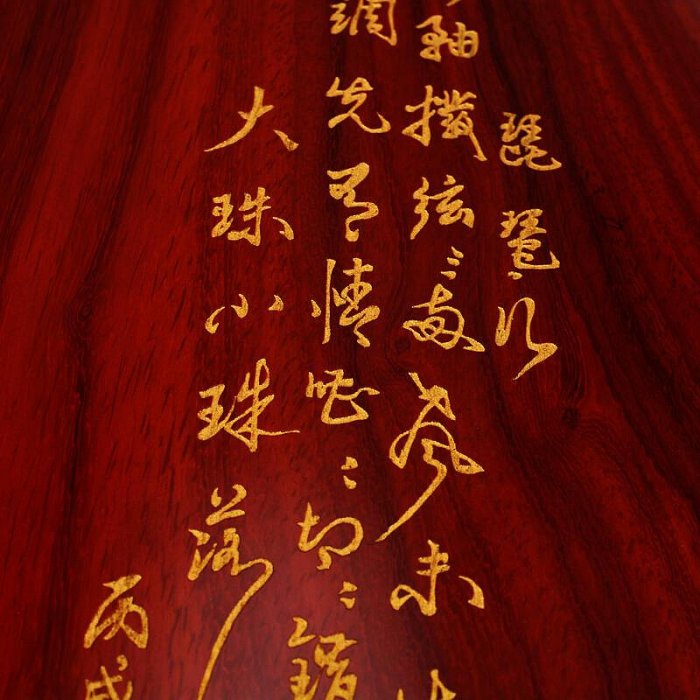 琵琶行
軸撥弦三兩聲未
調先有情嘈々切々錯
大珠小珠落
丙戌